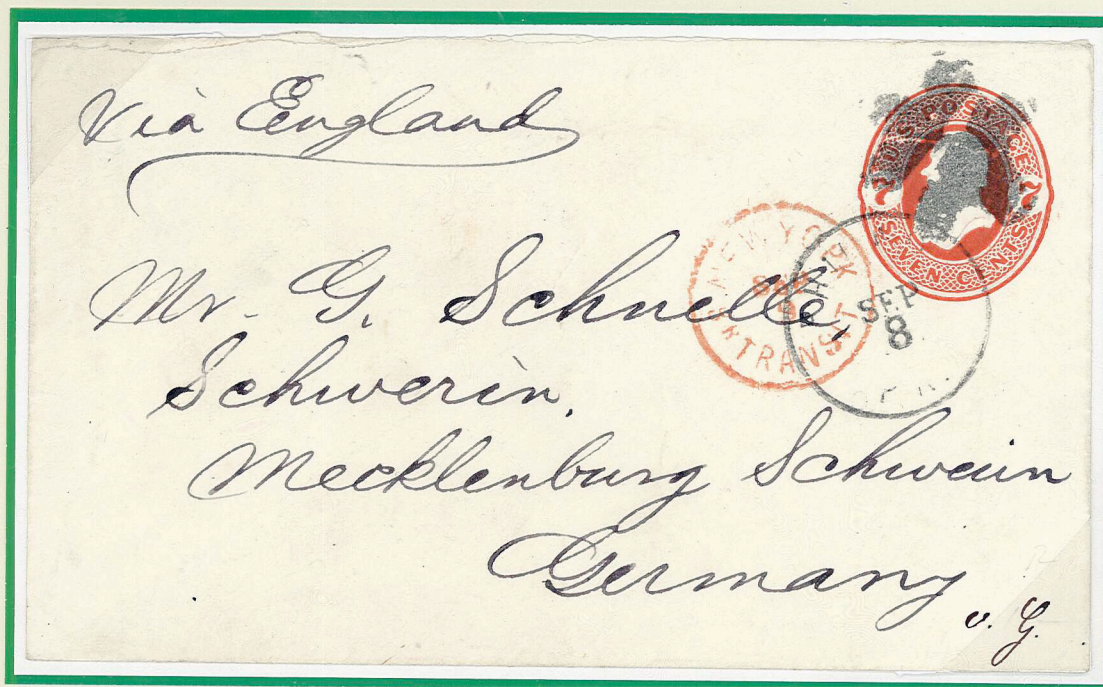 Via England
U.S. POSTAGE
7 7
SEVEN CENTS
NEW YORK
SEP
TRANSIT
SEP
8
Mr. G. Schnelle,
Schwerin,
Mecklenburg Schwerin
Germany
v. G.